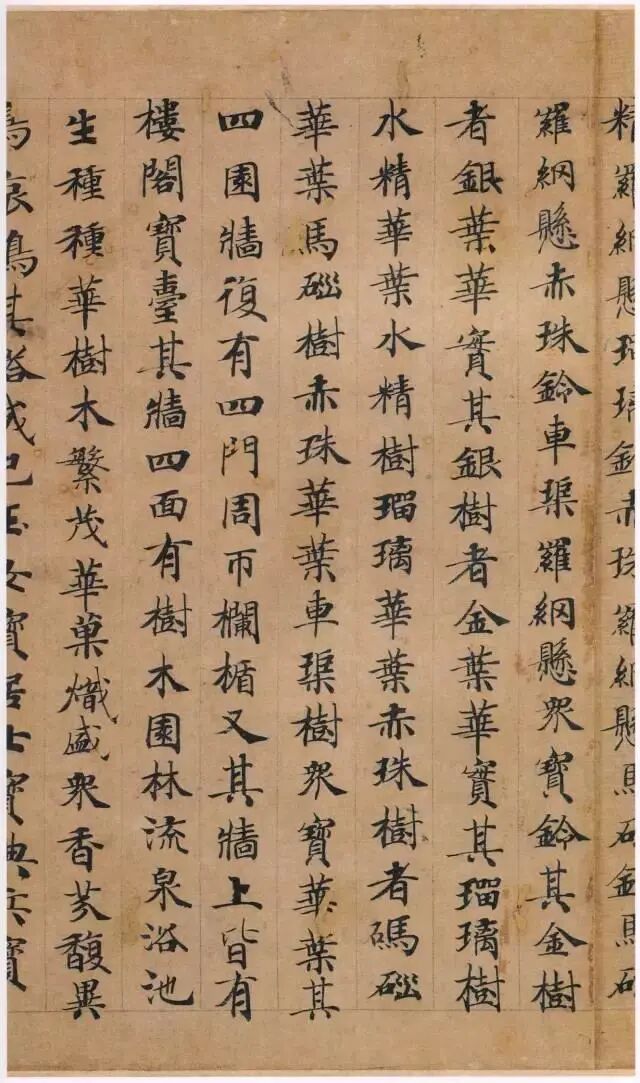 精羅網懸瑠璃鈴赤珠羅網懸馬碯鈴馬碯
羅網懸赤珠鈴車渠羅網懸衆寶鈴其金樹
者銀葉華實其銀樹者金葉華實其瑠璃樹
水精華葉水精樹瑠璃華葉赤珠樹者碼碯
華葉馬碯樹赤珠華葉車渠樹衆寶華葉其
四園牆復有四門周帀欄楯又其牆上皆有
樓閣寶臺其牆四面有樹木園林流泉浴池
生種種華樹木繁茂華菓熾盛衆香芬馥異
鳥哀鳴其塔成已玉女寶居士寶典兵寶